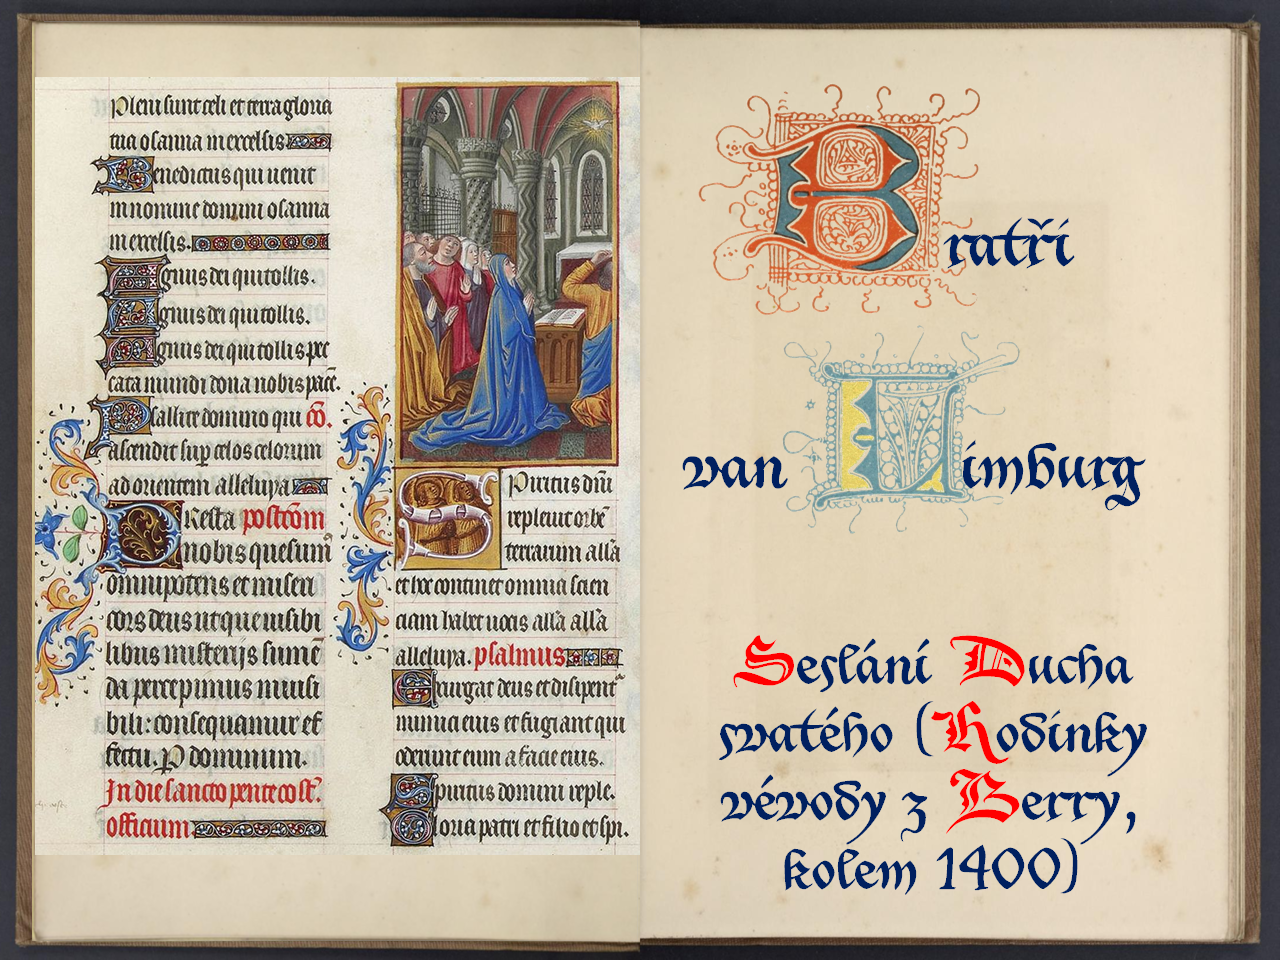 Pleni sunt celi et terra gloria
tua osanna in excelsis
Benedictus qui uenit
in nomine domini osanna
in excelsis.
Agnus dei qui tollis.
Agnus dei qui tollis.
Agnus dei qui tollis pec
cata mundi dona nobis pacē.
Psallite domino qui cō.
ascendit sup celos celorum
ad orientem alleluya
Presta postcōm
nobis quesum̄
omnipotens et miseri
cors deus ut que uisibi
libus misterijs sumē
da percepimus inuisi
bili: consequamur ef
fectu. P dominum.
In die sancto pentecost̄.
officium
Spiritus dn̄i
repleuit orbē
terrarum all̄a
et hoc continet omnia scien
ciam habet uocis all̄a all̄a
alleluya. psalmus
Exurgat deus et disipent̄
inimici eius et fugiant qui
oderunt eum a facie eius.
Spiritus domini reple.
Gloria patri et filio et spi.
Bratři
van Limburg
Seslání Ducha
svatého (Hodinky
vévody z Berry,
kolem 1400)